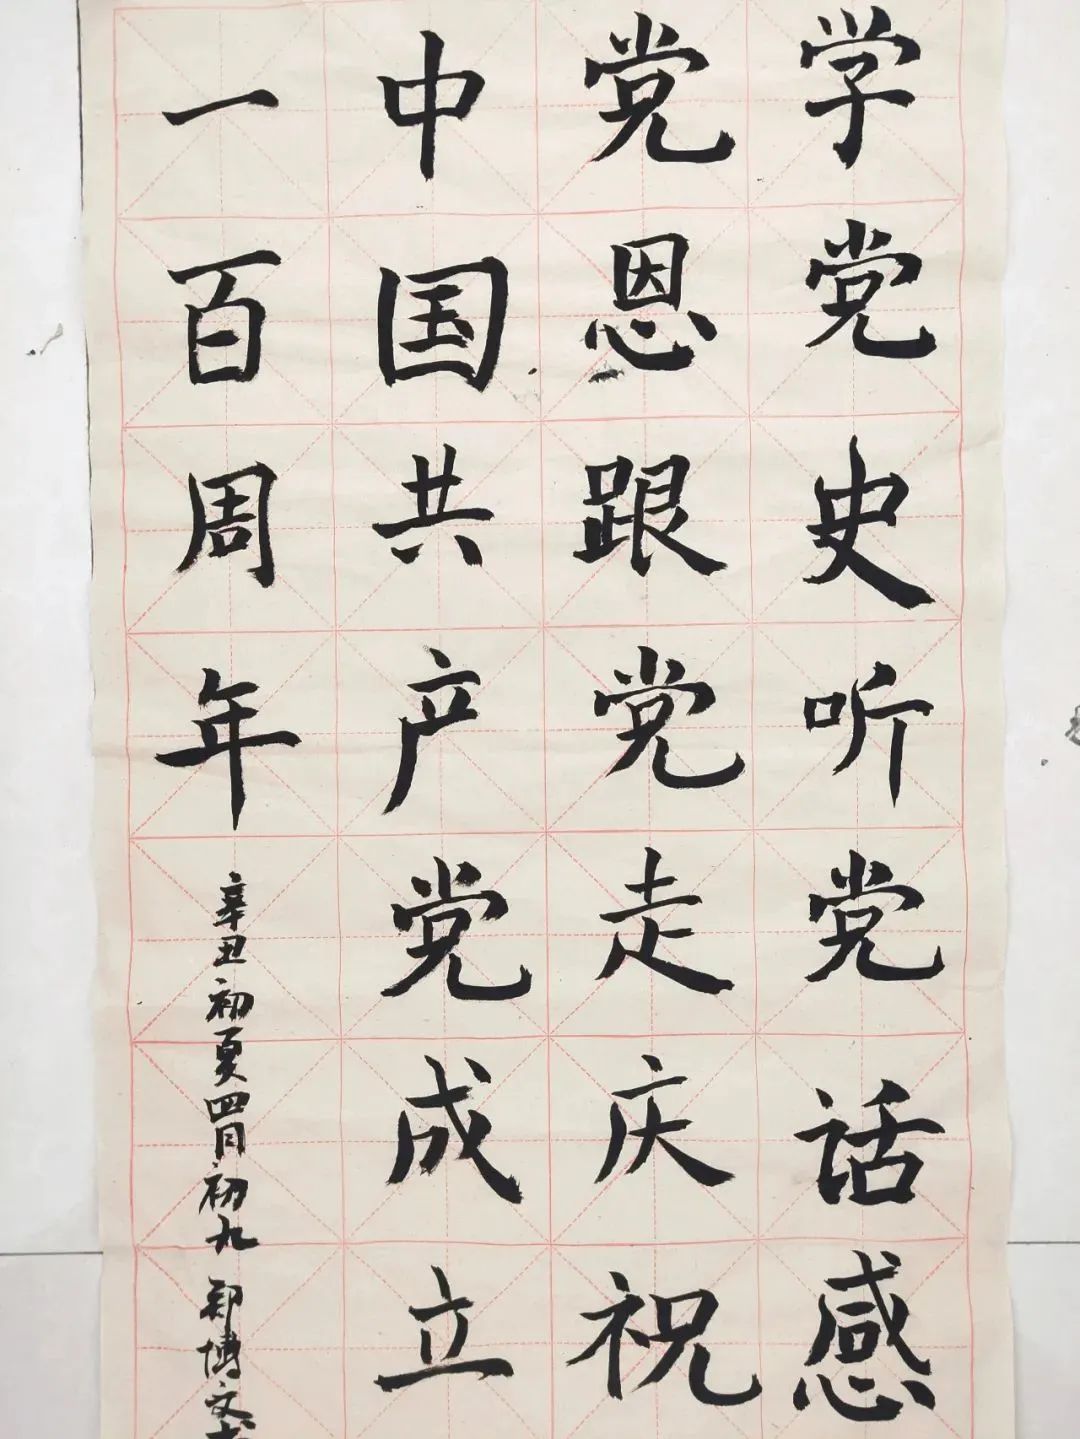 学党史听党话感
党恩跟党走庆祝
中国共产党成立
一百周年
辛丑初夏四月初九 郑博文书